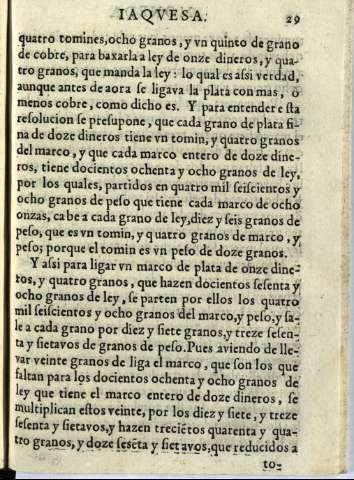 IAQVESA. 29
quatro tomines, ocho granos, y vn quinto de grano
de cobre, para baxarla a ley de onze dineros, y qua-
tro granos, que manda la ley: lo qual es assi verdad,
aunque antes de aora se ligava la plata con mas, ò
menos cobre, como dicho es. Y para entender esta
resolucion se presupone, que cada grano de plata fi-
na de doze dineros tiene vn tomin, y quatro granos
del marco, y que cada marco entero de doze dine-
ros, tiene docientos ochenta y ocho granos de ley,
por los quales, partidos en quatro mil seiscientos y
ocho granos de peso que tiene cada marco de ocho
onzas, cabe a cada grano de ley, diez y seis granos de
peso, que es vn tomin, y quatro granos de marco, y
peso; porque el tomin es vn peso de doze granos.
Y assi para ligar vn marco de plata de onze dine-
ros, y quatro granos, que hazen docientos sesenta y
ocho granos de ley, se parten por ellos los quatro
mil seiscientos y ocho granos del marco, y peso, y sa-
le a cada grano por diez y siete granos, y treze sesen-
ta y sietavos de granos de peso. Pues aviendo de lle-
var veinte granos de liga el marco, que son los que
faltan para los docientos ochenta y ocho granos de
ley que tiene el marco entero de doze dineros, se
multiplican estos veinte, por los diez y siete, y treze
sesenta y sietavos, y hazen treciẽtos quarenta y qua-
tro granos, y doze sesẽta y sietavos, que reducidos a
to-